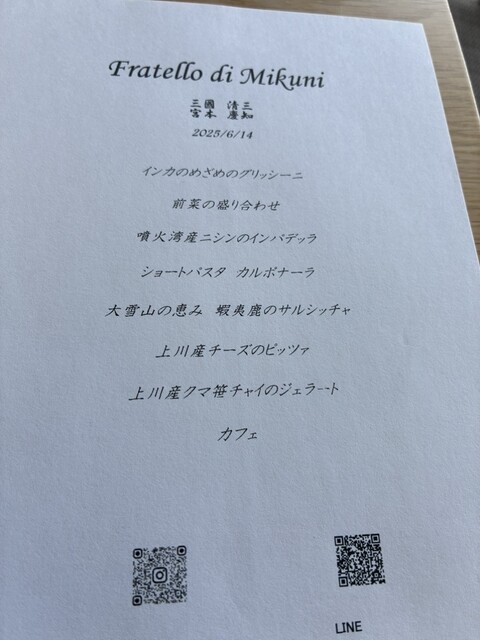 Fratello di Mikuni
三國 清三
宮本 慶知
2025/6/14
インカのめざめのグリッシーニ
前菜の盛り合わせ
噴火湾産ニシンのインパデッラ
ショートパスタ カルボナーラ
大雪山の恵み 蝦夷鹿のサルシッチャ
上川産チーズのピッツァ
上川産クマ笹チャイのジェラート
カフェ
LINE